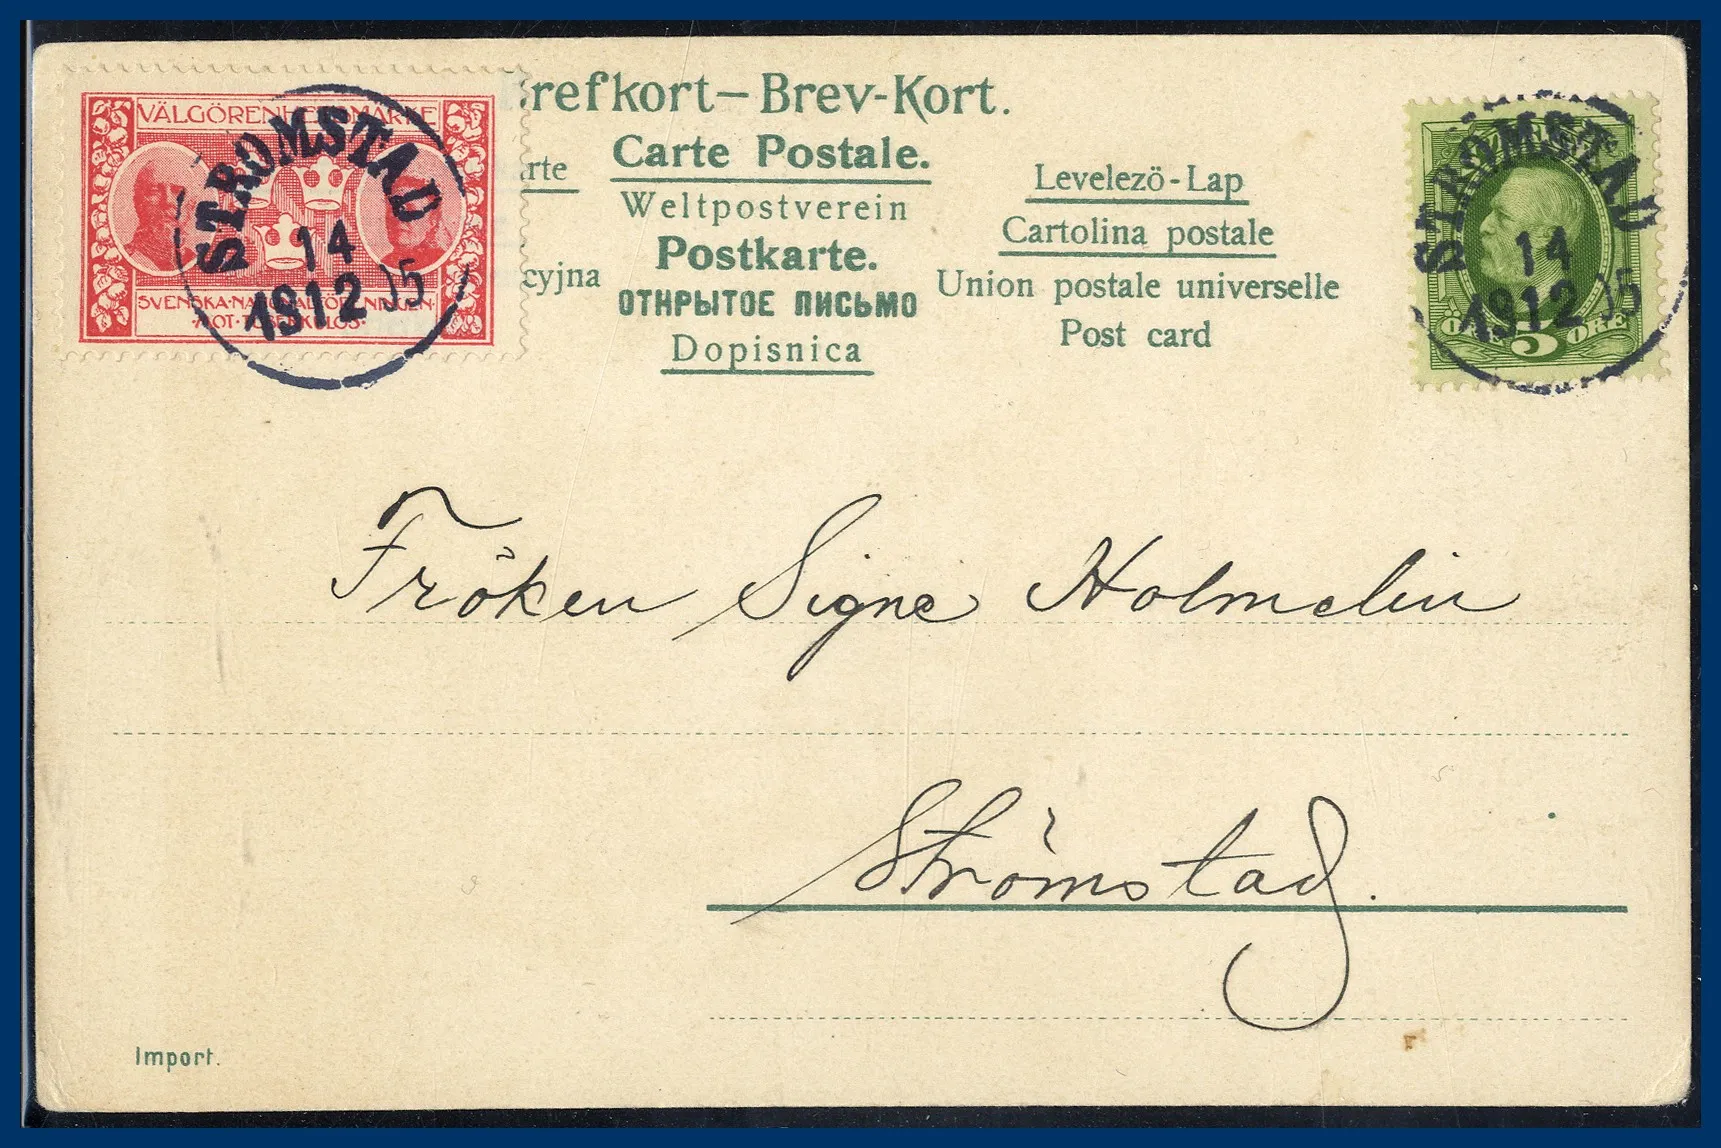 VÄLGÖRENHETSMÄRKE
SVENSKA·NATIONALFÖRENINGEN
·MOT·TUBERKULOS·
STRÖMSTAD
14
1912 05
refkort–Brev-Kort.
Carte Postale.
rte
Weltpostverein
Postkarte.
cyjna
ОТКРЫТОЕ ПИСЬМО
Dopisnica
Levelezö-Lap
Cartolina postale
Union postale universelle
Post card
STRÖMSTAD
14
1912 05
ÖRE 5 ÖRE
Fröken Signe Holmelin
Strömstad.
Import.